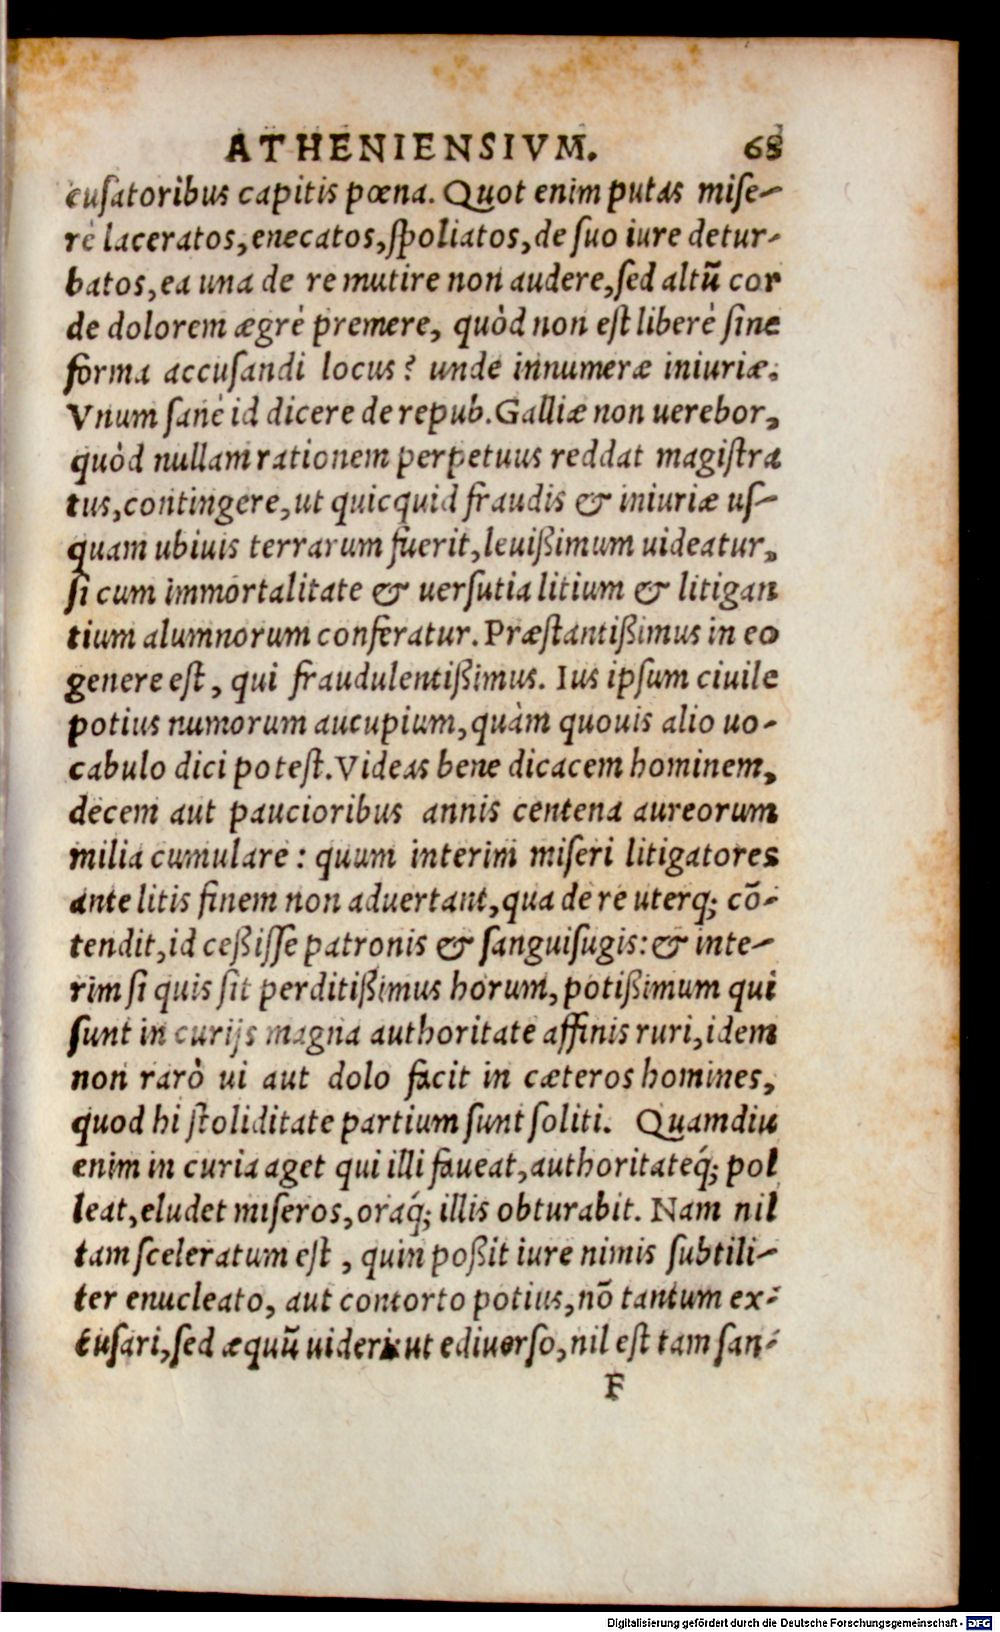 ATHENIENSIVM. 68
cusatoribus capitis pœna. Quot enim putas mise-
rè laceratos, enecatos, spoliatos, de suo iure detur-
batos, ea una de re mutire non audere, sed altū cor
de dolorem ægrè premere, quòd non est liberè sine
forma accusandi locus? unde innumeræ iniuriæ.
Vnum sanè id dicere de repub. Galliæ non uerebor,
quòd nullam rationem perpetuus reddat magistra
tus, contingere, ut quicquid fraudis & iniuriæ us-
quam ubiuis terrarum fuerit, leuißimum uideatur,
si cum immortalitate & uersutia litium & litigan
tium alumnorum conferatur. Præstantißimus in eo
genere est, qui fraudulentißimus. Ius ipsum ciuile
potius numorum aucupium, quàm quouis alio uo-
cabulo dici potest. Videas bene dicacem hominem,
decem aut paucioribus annis centena aureorum
milia cumulare: quum interim miseri litigatores
ante litis finem non aduertant, qua de re uterq; cō-
tendit, id ceßisse patronis & sanguisugis: & inte-
rim si quis sit perditißimus horum, potißimum qui
sunt in curijs magna authoritate affinis ruri, idem
non rarò ui aut dolo facit in cæteros homines,
quod hi stoliditate partium sunt soliti. Quamdiu
enim in curia aget qui illi faueat, authoritateq́; pol
leat, eludet miseros, oraq́; illis obturabit. Nam nil
tam sceleratum est, quin poßit iure nimis subtili-
ter enucleato, aut contorto potius, nō tantum ex-
cusari, sed æquū uideri: ut ediuerso, nil est tam san-
F
Digitalisierung gefördert durch die Deutsche Forschungsgemeinschaft - DFG